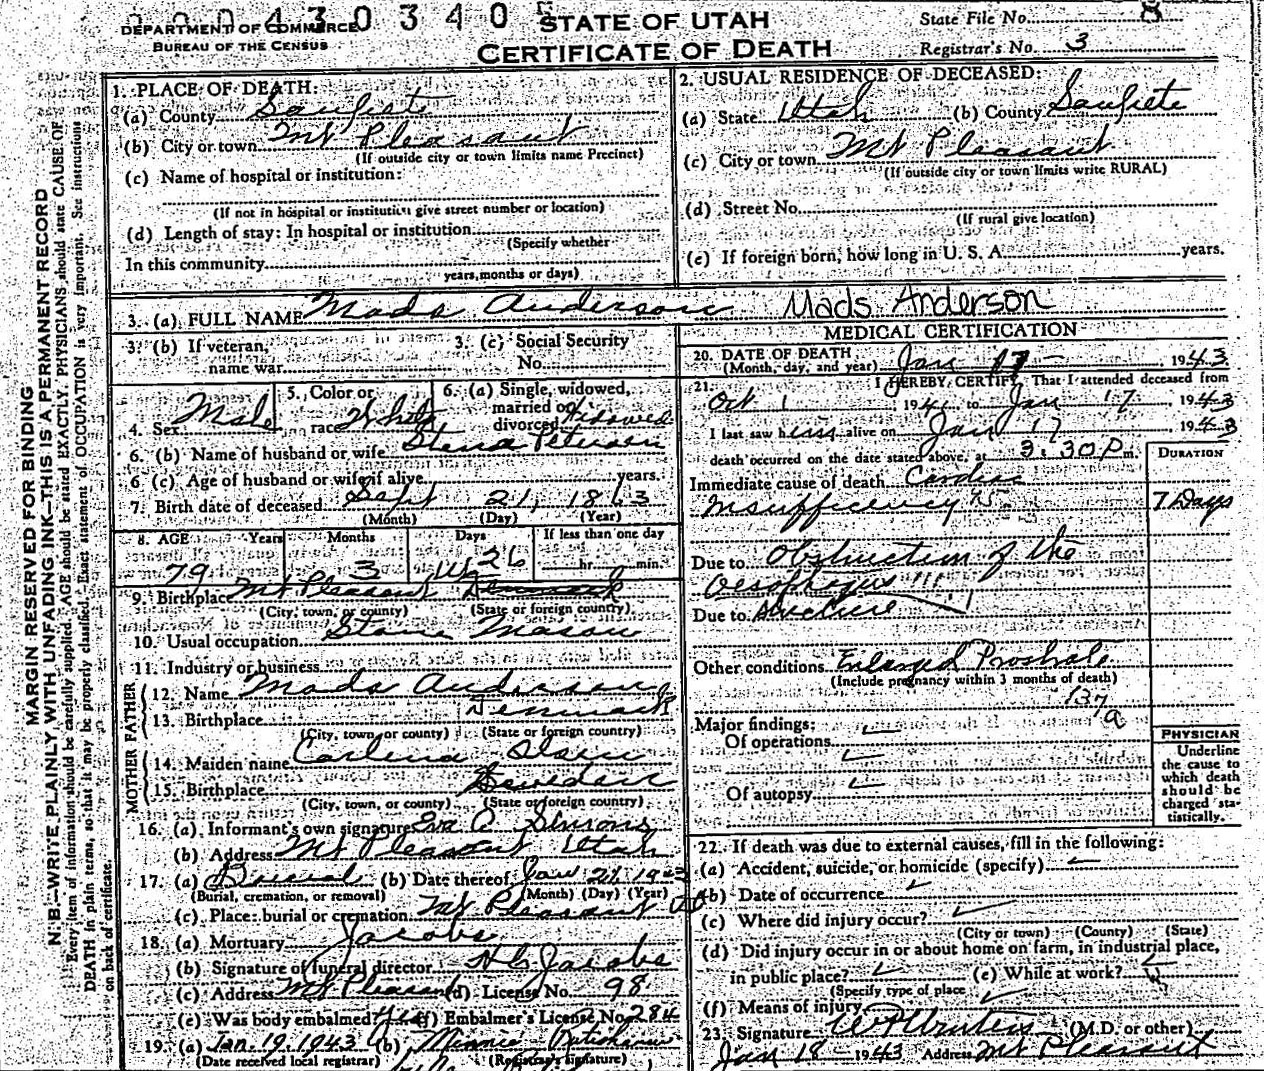 0 4 3 0 3 4 0
DEPARTMENT OF COMMERCE
BUREAU OF THE CENSUS
STATE OF UTAH
CERTIFICATE OF DEATH
State File No. 8
Registrar's No. 3
MARGIN RESERVED FOR BINDING
N. B.—WRITE PLAINLY WITH UNFADING INK—THIS IS A PERMANENT RECORD
Every item of information should be carefully supplied. AGE should be stated EXACTLY. PHYSICIANS should state CAUSE OF
DEATH in plain terms, so that it may be properly classified. Exact statement of OCCUPATION is very important. See instructions
on back of certificate.
1. PLACE OF DEATH:
(a) County Sanpete
(b) City or town Mt Pleasant
(If outside city or town limits name Precinct)
(c) Name of hospital or institution:
(If not in hospital or institution give street number or location)
(d) Length of stay: In hospital or institution
(Specify whether
In this community
years, months or days)
2. USUAL RESIDENCE OF DECEASED:
(a) State Utah (b) County Sanpete
(c) City or town Mt Pleasant
(If outside city or town limits write RURAL)
(d) Street No.
(If rural give location)
(e) If foreign born, how long in U. S. A. years.
3. (a) FULL NAME Mads Anderson Mads Anderson
3. (b) If veteran, name war
3. (c) Social Security No.
4. Sex Male
5. Color or race White
6. (a) Single, widowed, married or divorced widowed
6. (b) Name of husband or wife Stena Petersen
6 (c) Age of husband or wife if alive years.
7. Birth date of deceased Sept 21, 1863
(Month) (Day) (Year)
8. AGE Years Months Days If less than one day
79 3 26 hr. min.
9. Birthplace Mt Pleasant Denmark
(City, town, or county) (State or foreign country)
10. Usual occupation Stone Mason
11. Industry or business
FATHER
12. Name Mads Anderson
13. Birthplace Denmark
(City, town, or county) (State or foreign country)
MOTHER
14. Maiden name Carlena Olsen
15. Birthplace Sweden
(City, town, or county) (State or foreign country)
16. (a) Informant's own signature Eva A Simons
(b) Address Mt Pleasant Utah
17. (a) Burial (b) Date thereof Jan 21 1943
(Burial, cremation, or removal) (Month) (Day) (Year)
(c) Place: burial or cremation Mt Pleasant
18. (a) Mortuary Jacobs
(b) Signature of funeral director H C Jacobs
(c) Address Mt Pleasant (d) License No. 98
(e) Was body embalmed? Yes (f) Embalmer's License No. 284
19. (a) Jan. 19. 1943 (b) Minnie
(Date received local registrar) (Registrar's signature)
MEDICAL CERTIFICATION
20. DATE OF DEATH Jan 17 1943
(Month, day, and year)
21. I HEREBY CERTIFY, That I attended deceased from
Oct 1 1941 to Jan 17 1943
I last saw him alive on Jan 17 1943
death occurred on the date stated above, at 3:30 P m.
DURATION
Immediate cause of death Cardiac
Insufficiency 7 Days
Due to Obstruction of the
Oesophagus !!!
Due to Stricture !!
Other conditions Enlarged Prostate
(Include pregnancy within 3 months of death)
137a
Major findings:
Of operations
Of autopsy
PHYSICIAN
Underline
the cause to
which death
should be
charged sta-
tistically.
22. If death was due to external causes, fill in the following:
(a) Accident, suicide, or homicide (specify)
(b) Date of occurrence
(c) Where did injury occur?
(City or town) (County) (State)
(d) Did injury occur in or about home on farm, in industrial place,
in public place? (e) While at work?
(Specify type of place
(f) Means of injury
23. Signature (M.D. or other)
Jan 18 1943 Address Mt Pleasant